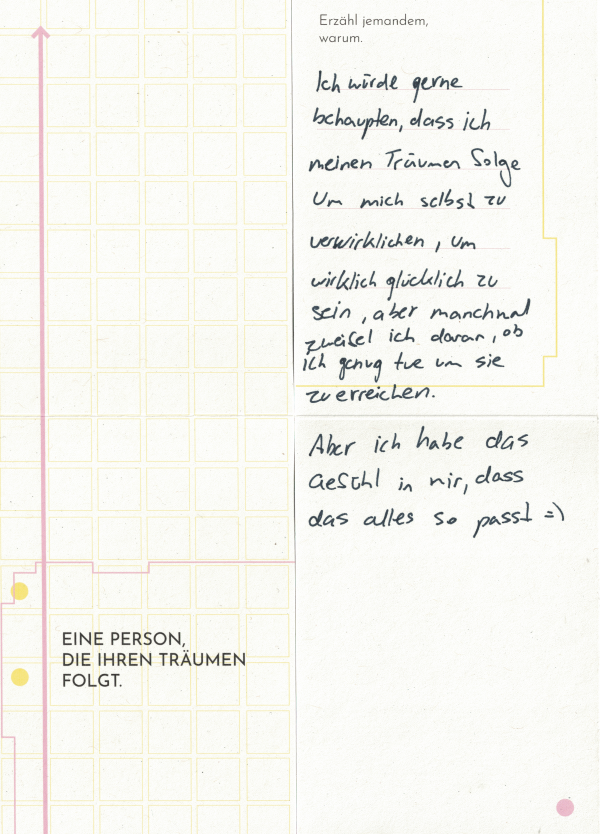 Erzähl jemandem,
warum.
Ich würde gerne
behaupten, dass ich
meinen Träumen folge
um mich selbst zu
verwirklichen, um
wirklich glücklich zu
sein, aber manchmal
zweifel ich daran, ob
ich genug tue um sie
zu erreichen.
Aber ich habe das
Gefühl in mir, dass
das alles so passt =)
EINE PERSON,
DIE IHREN TRÄUMEN
FOLGT.